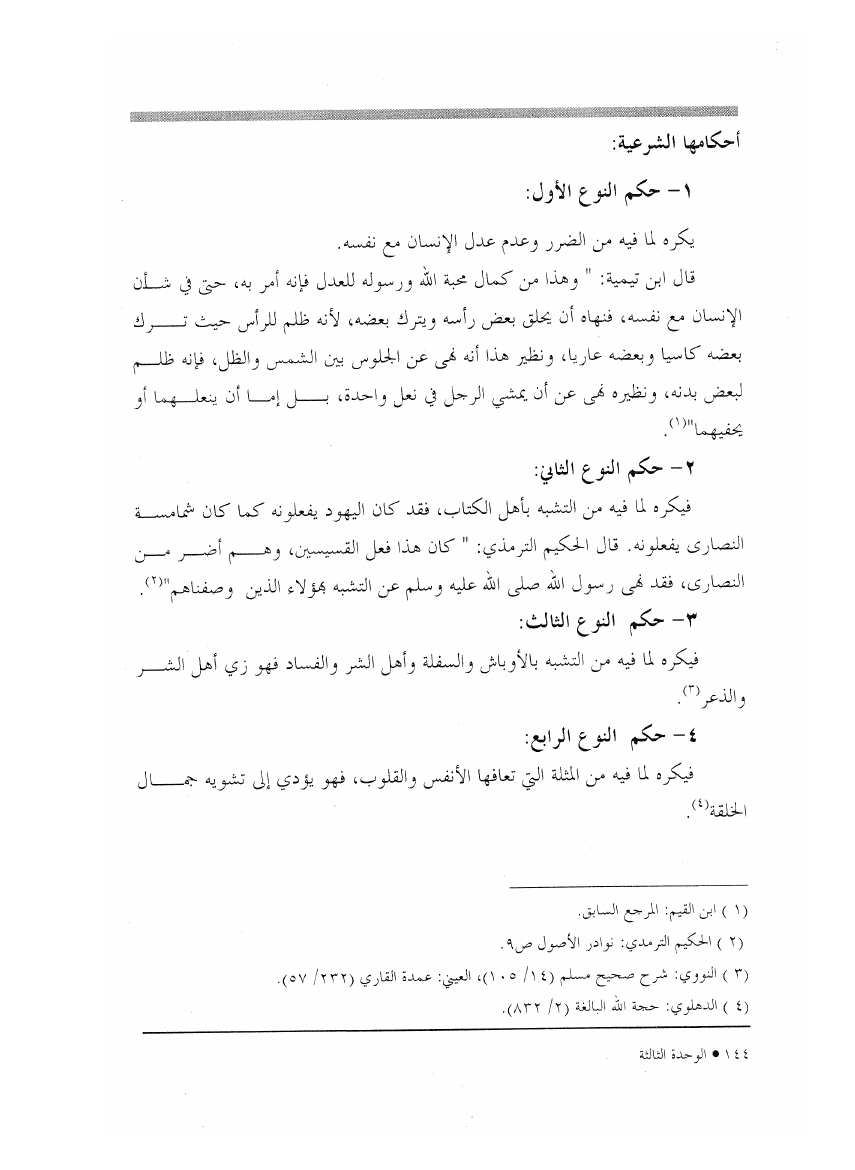 أحكامها الشرعية:
١- حكم النوع الأول:
يكره لما فيه من الضرر وعدم عدل الإنسان مع نفسه.
قال ابن تيمية: " وهذا من كمال محبة الله ورسوله للعدل فإنه أمر به، حتى في شأن
الإنسان مع نفسه، فنهاه أن يحلق بعض رأسه ويترك بعضه، لأنه ظلم للرأس حيث ترك
بعضه كاسيا وبعضه عاريا، ونظير هذا أنه نهى عن الجلوس بين الشمس والظل، فإنه ظلم
لبعض بدنه، ونظيره نهى عن أن يمشي الرجل في نعل واحدة، بل إما أن ينعلهما أو
يحفيهما"(١).
٢- حكم النوع الثاني:
فيكره لما فيه من التشبه بأهل الكتاب، فقد كان اليهود يفعلونه كما كان شمامسة
النصارى يفعلونه. قال الحكيم الترمذي: " كان هذا فعل القسيسين، وهم أضر من
النصارى، فقد نهى رسول الله صلى الله عليه وسلم عن التشبه بهؤلاء الذين وصفناهم"(٢).
٣- حكم النوع الثالث:
فيكره لما فيه من التشبه بالأوباش والسفلة وأهل الشر والفساد فهو زي أهل الشر
والذعر(٣).
٤- حكم النوع الرابع:
فيكره لما فيه من المثلة التي تعافها الأنفس والقلوب، فهو يؤدي إلى تشويه جمال
الخلقة(٤).
(١) ابن القيم: المرجع السابق.
(٢) الحكيم الترمدي: نوادر الأصول ص٩.
(٣) النووي: شرح صحيح مسلم (١٤/ ١٠٥)، العيني: عمدة القاري (٢٣٢/ ٥٧).
(٤) الدهلوي: حجة الله البالغة (٢/ ٨٣٢).
١٤٤ ● الوحدة الثالثة